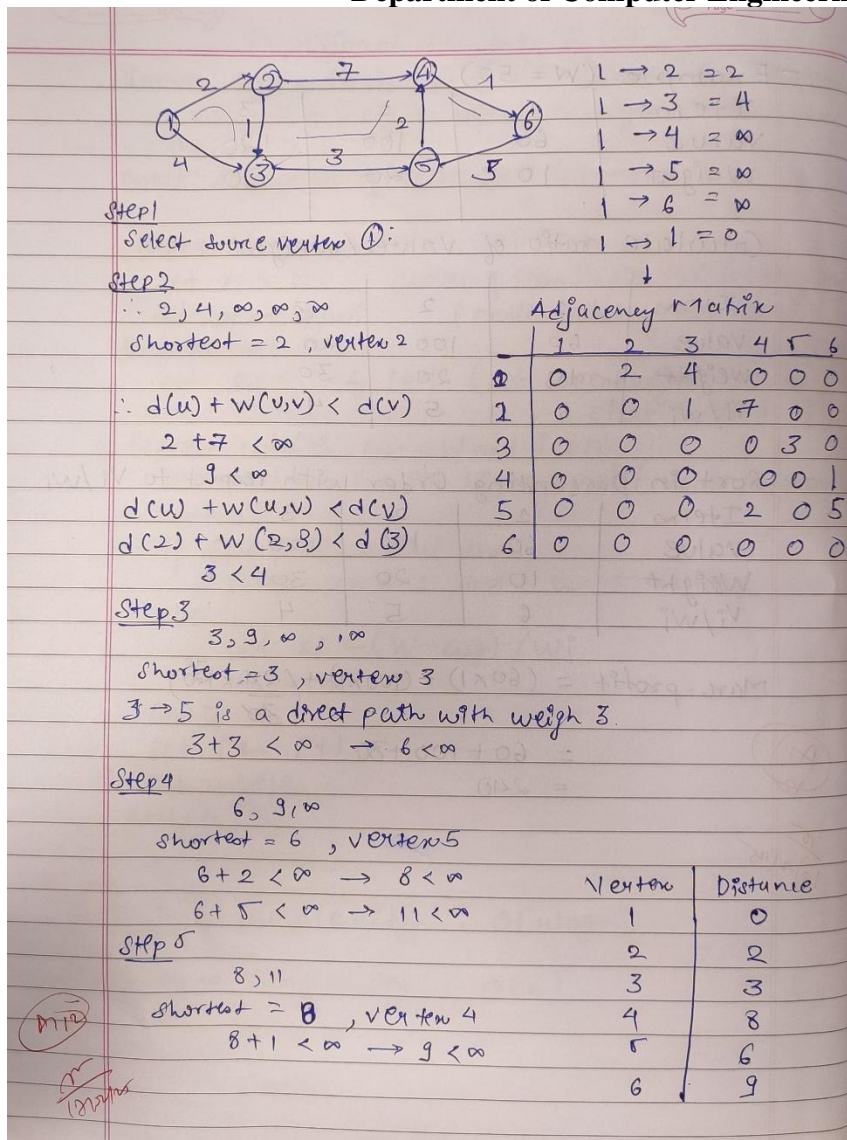 Department of Computer Engineerin
2 7 1
1 2 4 6
1 2
4 3 3 5 5
1 → 2 = 2
1 → 3 = 4
1 → 4 = ∞
1 → 5 = ∞
1 → 6 = ∞
1 → 1 = 0
↓
Step1
Select source vertex ①:
Step 2
∴ 2, 4, ∞, ∞, ∞
Shortest = 2, vertex 2
∴ d(u) + W(u,v) < d(v)
2 + 7 < ∞
9 < ∞
d(u) + w(u,v) < d(v)
d(2) + W(2,3) < d(3)
3 < 4
Adjacency Matrix
1 2 3 4 5 6
1 0 2 4 0 0 0
2 0 0 1 7 0 0
3 0 0 0 0 3 0
4 0 0 0 0 0 1
5 0 0 0 2 0 5
6 0 0 0 0 0 0
Step 3
3, 9, ∞, ∞
Shortest = 3, vertex 3
3 → 5 is a direct path with weigh 3.
3+3 < ∞ → 6 < ∞
Step 4
6, 9, ∞
Shortest = 6, vertex 5
6 + 2 < ∞ → 8 < ∞
6 + 5 < ∞ → 11 < ∞
Step 5
8, 11
Shortest = 8, vertex 4
8 + 1 < ∞ → 9 < ∞
Vertex Distance
1 0
2 2
3 3
4 8
5 6
6 9